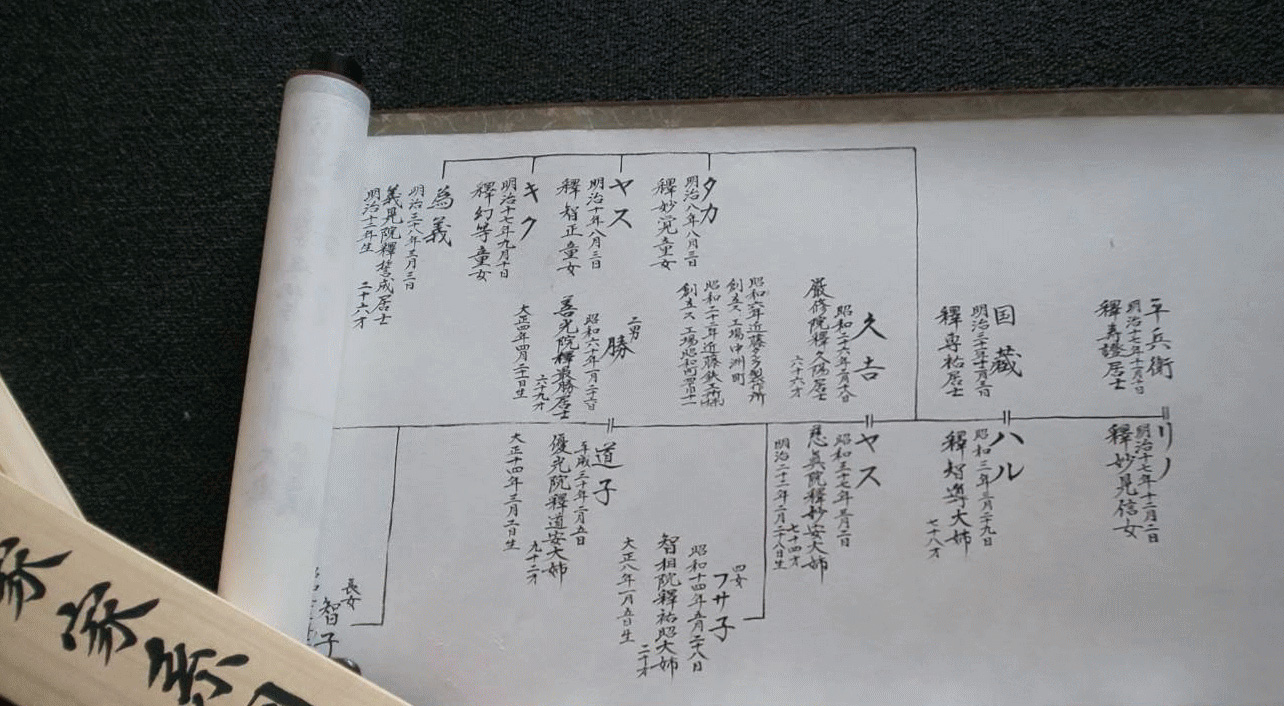 平兵衛
明治十七年十一月十日
釋寿證居士
リノ
明治十七年十二月二日
釋妙見信女
国蔵
釋專祐居士
ハル
昭和三年三月二十九日
釋智導大姉
七十八才
久吉
昭和二十六年十一月八日
厳修院釋久陽居士
六十六才
昭和六年近藤多製作所
創立ス 工場中洲町
昭和二十三年近藤鉄工所
ヤス
昭和三十七年三月二日
慈眞院釋妙安大姉
七十四才
明治二十二年二月二十八日生
タカ
明治八年八月三日
釋妙覚童女
ヤス
明治十年八月三日
釋智正童女
キク
明治十七年九月十日
釋幻等童女
為義
明治三十八年三月三日
義晃院釋誓成居士
明治十二年生
二十六才
四女
フサ子
昭和十四年五月二十八日
智相院釋祐昭大姉
二十才
大正八年一月五日生
二男
勝
昭和六八年一月二十六日
善光院釋最勝居士
六十九才
大正四年四月二十日生
道子
平成三十年二月五日
優光院釋道安大姉
九十二才
大正十四年三月二日生
長女
智子
家
家
系